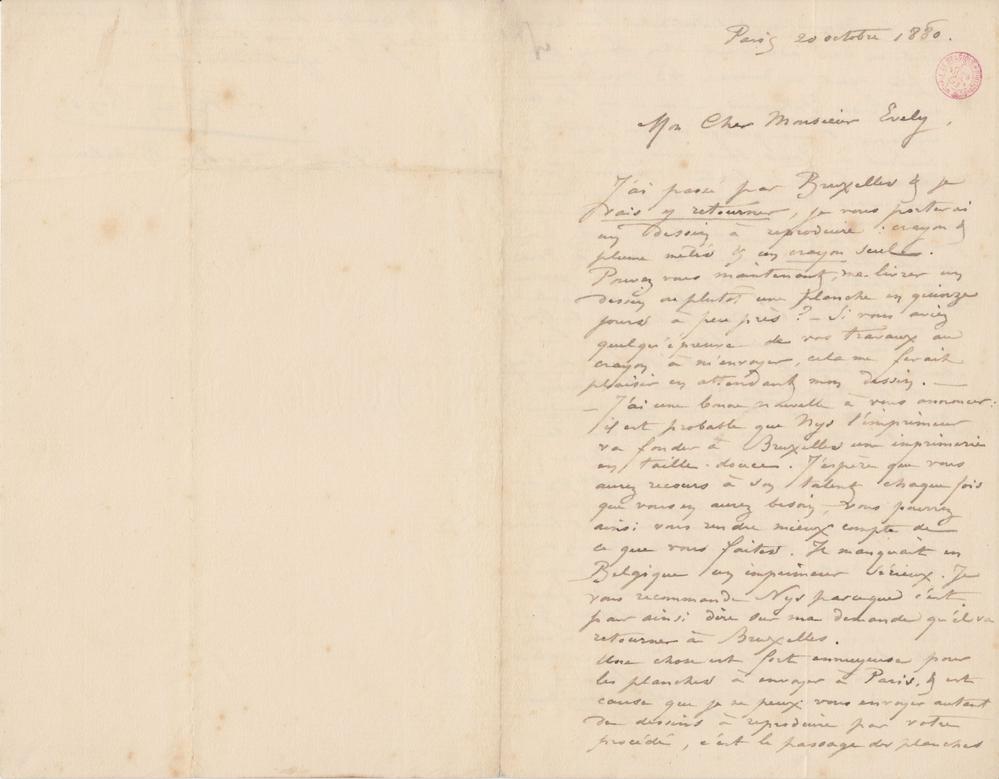 Paris 20 octobre 1880.
Mon Cher Monsieur Evely,
J'ai passé par Bruxelles & je
vais y retourner, je vous porterai
un dessin à reproduire : crayon &
plume mêlés & un crayon seul.
Pouvez vous maintenant, me livrer un
dessin ou plutôt une planche en quinze
jours à peu près ? — Si vous aviez
quelqu'épreuve de vos travaux au
crayon à m'envoyer, cela me ferait
plaisir en attendant mon dessin. —
— J'ai une bonne nouvelle à vous annoncer :
il est probable que Nys l'imprimeur
va fonder à Bruxelles une imprimerie
en taille-douce. J'espère que vous
aurez recours à son talent chaque fois
que vous en aurez besoin, vous pourrez
ainsi vous rendre mieux compte de
ce que vous faites. Il manquait en
Belgique un imprimeur sérieux. Je
vous recommande Nys parceque c'est
pour ainsi dire sur ma demande qu'il va
retourner à Bruxelles.
Une chose est fort ennuyeuse pour
les planches à envoyer à Paris, & est
cause que je ne peux vous envoyer autant
de dessins à reproduire par votre
procédé, c'est le passage des planches